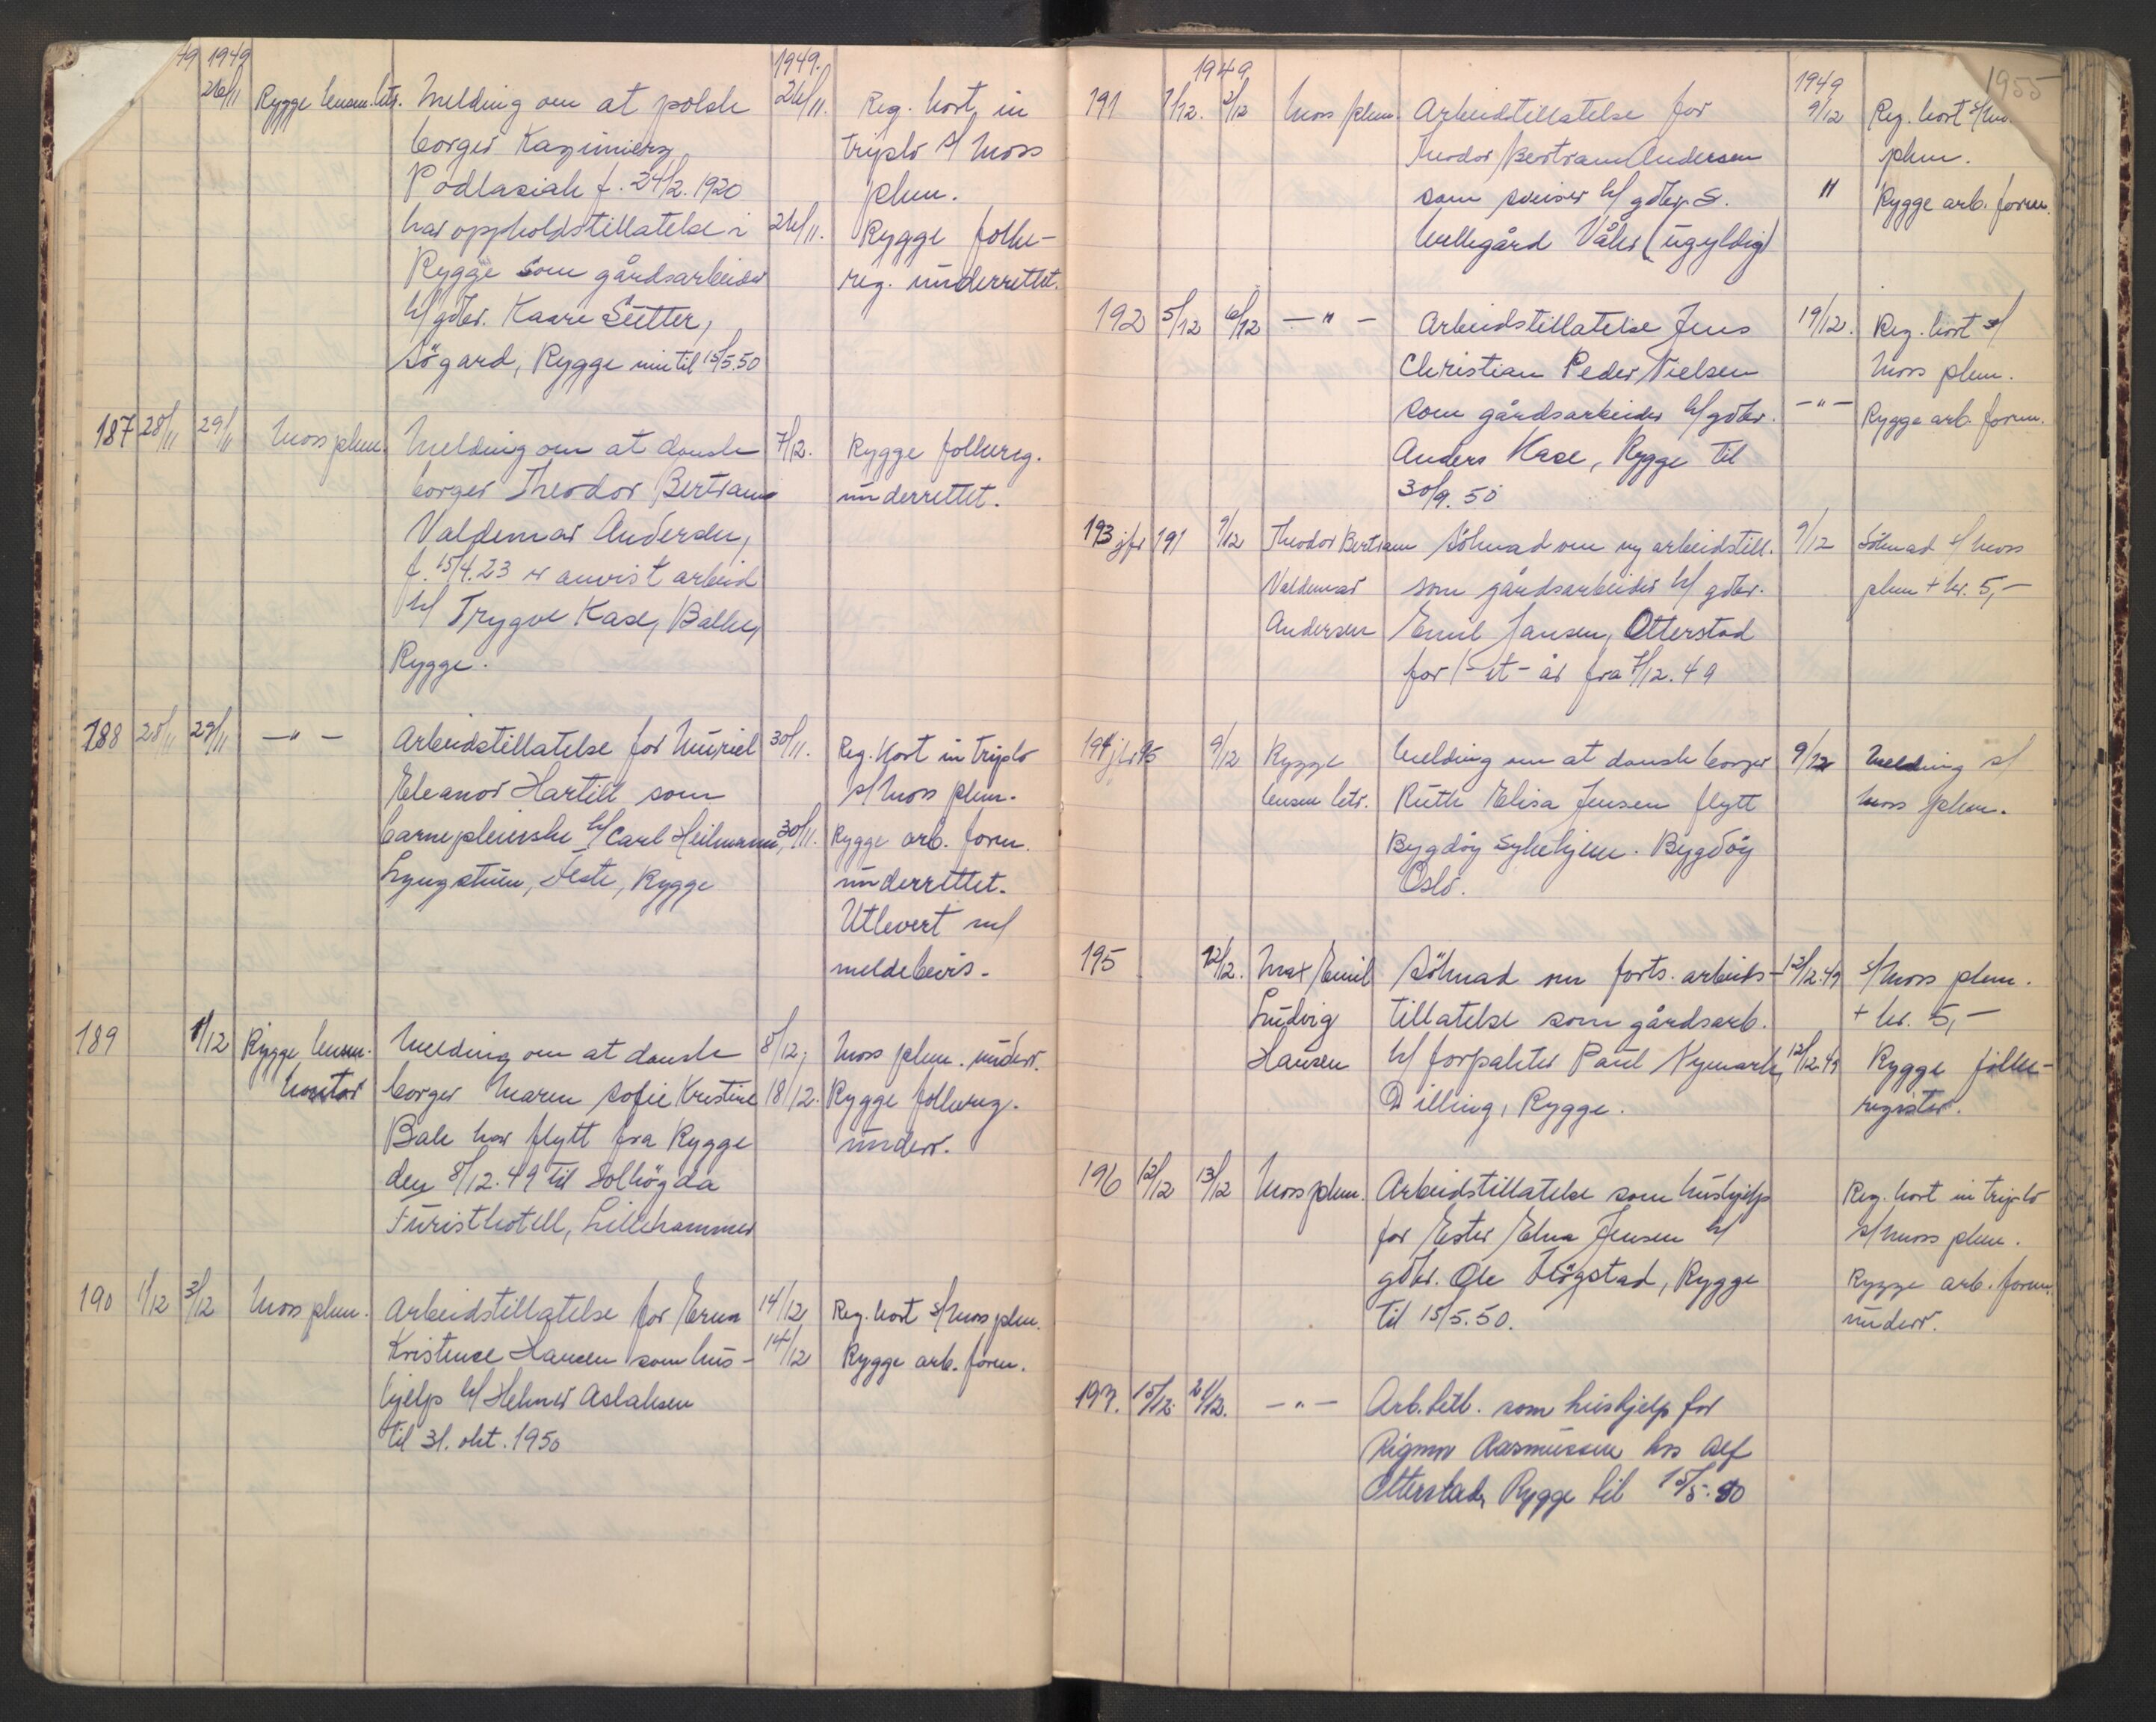 49 1949 1949.
26/11 Rygge lensm.ktr. Melding om at polsk 26/11. Reg. kort in
borger Kazimierz triplo s/ Moss
Podlasiak f. 24/2. 1920 plkm.
har oppholdstillatelse i 26/11. Rygge folke-
Rygge som gårdsarbeider reg. underrettet.
h/ gdbr. Kaare Sutter,
Søgard, Rygge inntil 15/5.50
187 28/11 29/11 Moss plkm. Melding om at dansk 7/12. Rygge folkereg.
borger Theodor Bertram underrettet.
Valdemar Andersen,
f. 15/4.23 er anvist arbeid
h/ Trygve Kase, Balke,
Rygge.
188 28/11 29/11 —"— Arbeidstillatelse for Muriel 30/11. Reg. Kort in triplo
Eleanor Hartill som s/ Moss plkm.
barnepleierske h/ Carl Heilmann, 30/11. Rygge arb. form.
Lyngstuen, Rygge underrettet.
Utlevert m/
meldebevis.
189 1/12 Rygge lensm. Melding om at dansk 8/12, Moss plkm. underr.
kontor borger Maren Sofie Kristine 18/12. Rygge folkereg.
Bak har flytt fra Rygge underr.
den 8/12.49 til Solhøgda
Turisthotell, Lillehammer
190 1/12 3/12 Moss plkm. Arbeidstillatelse for Erna 14/12 Reg. kort s/ Moss plkm.
Kristense Hansen som hus- 14/12 Rygge arb. form.
hjelp h/ Helmer Aslaksen
til 31. okt. 1950
1949 1949 1955
191 1/12. 2/12 Moss plkm. Arbeidstillatelse for 9/12 Reg. kort s/
Theodor Bertram Andersen plkm.
som sveiser h/ gdbr. S. " Rygge arb. form.
Mellegård Våler (ugyldig)
192 5/12 6/12 —"— Arbeidstillatelse Jens 19/12. Reg. kort s/
Christian Peder Nielsen Moss plkm.
som gårdsarbeider h/ gdbr. —"— Rygge arb. form.
Anders Kase, Rygge til
30/9. 50
193 jfr 191 9/12 Theodor Bertram Søknad om ny arbeidstill. 9/12 Søknad s/ Moss
Valdemar som gårdsarbeider h/ gdbr. plkm + kr. 5,-
Andersen Emil Jansen, Otterstad
for 1-et- år fra 7/12.49
194 jfr 95 9/12 Rygge Melding om at dansk borger 9/12 Melding s/
lensm ktr. Ruth Elisa Jensen flytt Moss plkm.
Bygdøy Sykehjem. Bygdøy
Oslo.
195 12/12. Max Emil Søknad om forts. arbeids- 12/12.49 s/ Moss plkm.
Ludvig tillatelse som gårdsarb. + kr. 5,-
Hansen h/ forpakter Paul Nymark, 12/12.49 Rygge folke-
Dilling, Rygge. register.
196 12/12 13/12 Moss plkm. Arbeidstillatelse som hushjelp Reg. kort in triplo
for Ester Elna Jensen h/ s/ Moss plkm.
gdbr. Ole Høgstad, Rygge Rygge arb. form.
til 15/5.50. underr.
197. 15/12. 21/12. —"— Arb.till. som hushjelp for
Rigmor Rasmussen hos Alf
Otterstad, Rygge til 15/5.50